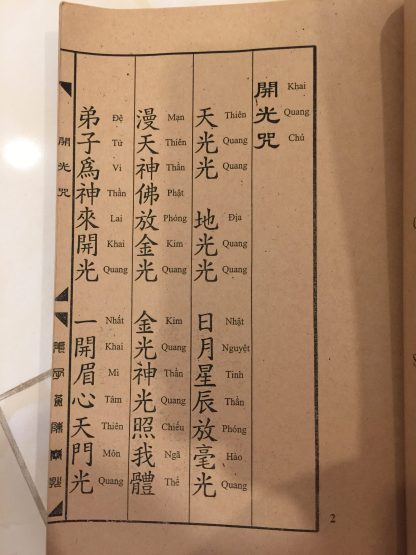 開光咒
Khai Quang Chú
天光光 地光光 日月星辰放毫光
Thiên Quang Quang Địa Quang Quang Nhật Nguyệt Tinh Thần Phóng Hào Quang
漫天神佛放金光 金光神光照我體
Mạn Thiên Thần Phật Phóng Kim Quang Kim Quang Thần Quang Chiếu Ngã Thể
弟子爲神來開光 一開眉心天門光
Đệ Tử Vi Thần Lai Khai Quang Nhất Khai Mi Tâm Thiên Môn Quang
開光咒
2